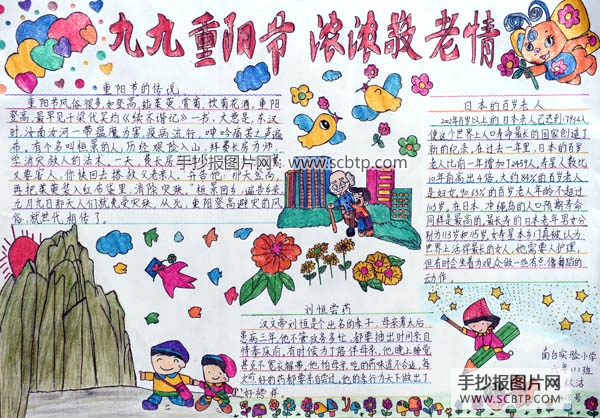 九九重阳节 浓浓敬老情
重阳节的传说
重阳节风俗很多如登高,插茱萸,赏菊,饮菊花酒,重阳
登高,最早见于梁代吴均《续齐谐记》一书,大意是,东汉
时,汝南汝河一带瘟魔为害,疫病流行,呻吟痛苦之声遍
布,有个名叫桓景的人,历经艰险入山,拜费长房为师,
学消灾救人的法术。一天,费长房
又要害人,你快回去搭救父老亲人。"并告他:那天登高,
再把茱萸装入红布袋里,消除灾殃。"桓景回乡,遍告乡亲
九月九日那天人们就免受灾殃。从此,重阳登高避灾的风
俗,就世代相传了。
日本的百岁老人
这个世界上人口寿命最长的国家创造了
新的纪录,在过去一年里,日本的百岁
老人比前一年增加了2459人,寿星人数比
10年前高出4倍。大约84%的百岁老人
是妇女,90.63%的百岁老人年龄不超过
同样是最高的,最长寿的日本老年男女分
别为113岁和115岁。女寿星本乡门真被认为
世界上活得最长的女人,她需要人护理,
但有时会坐着为观众做一些有点像舞蹈的
动作。
手抄报图片网
www.scbtp.com
刘恒尝药
汉文帝刘恒是个出名的孝子,母亲薄太后
患病三年,他不管政务多忙,都要抽出时间亲自
侍奉床前,有时候为了陪伴母亲,他晚上睡觉
甚至不宽衣解带,他怕母亲吃的药味道不合适,每
次煎好的药都要亲自尝过,他的孝行为天下做出了
好榜样。
南台实验小学
手抄报图片网
WWW.SCBTP.COM